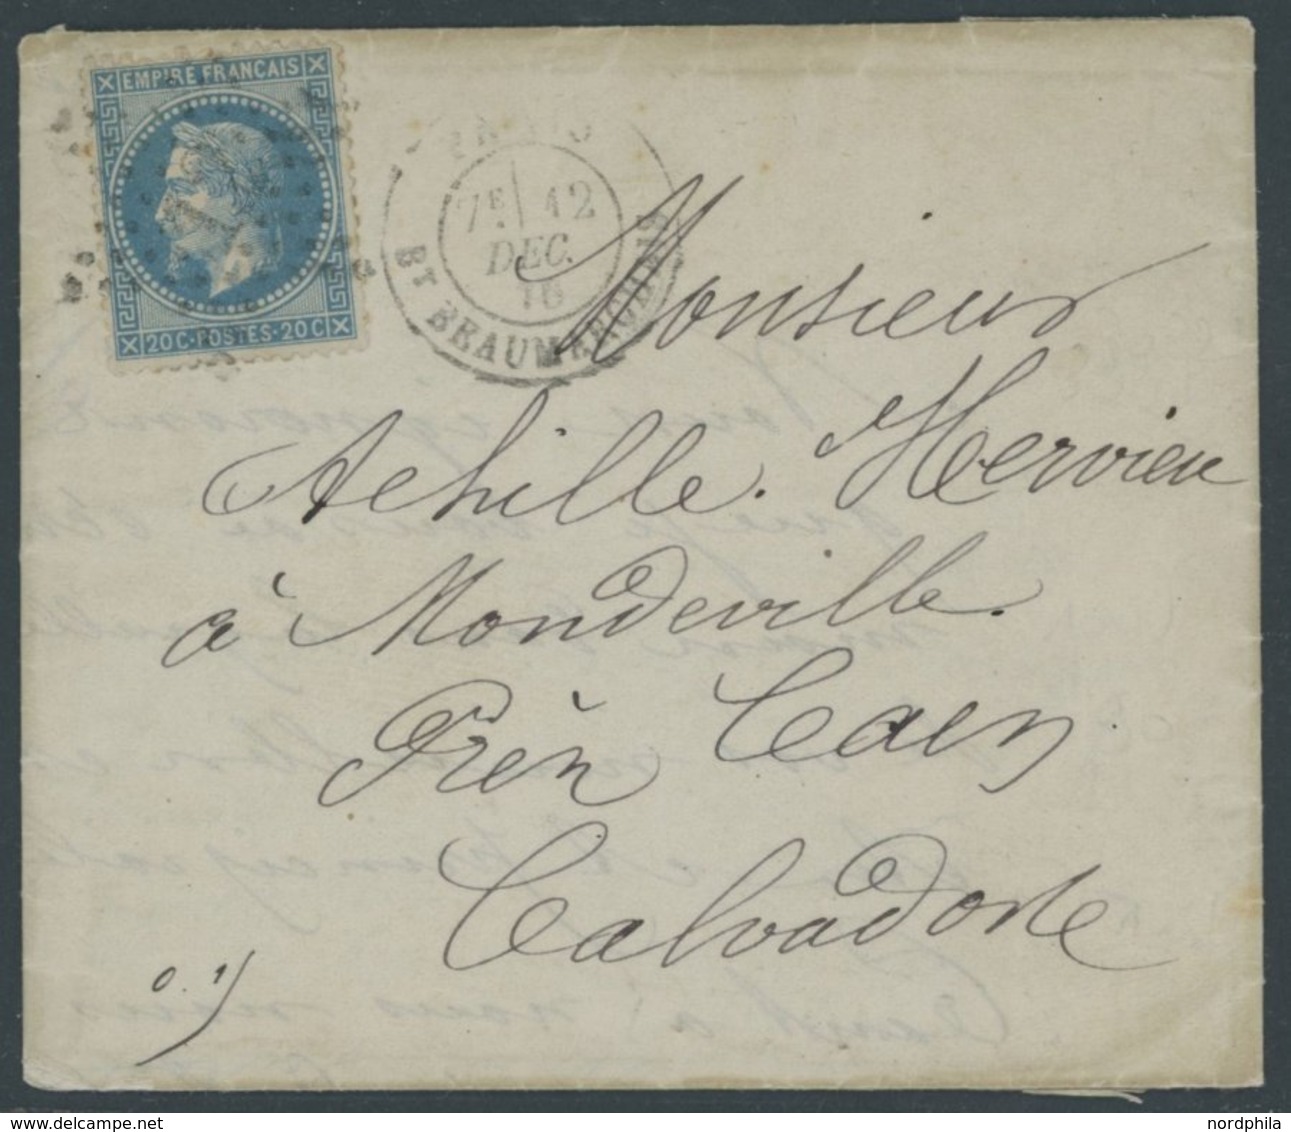 EMPIRE FRANCAIS
20C·POSTES·20C
PARIS
7E 12
DEC.
BT BEAUMARCHAIS
Monsieur
Achille. Hervieu
à Mondeville.
Près Caen
Calvados
nordphila